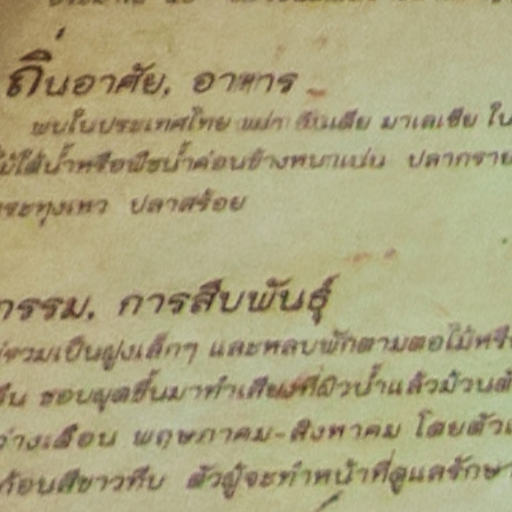 ถิ่นอาศัย, อาหาร
พบในประเทศไทย พม่า อินเดีย มาเลเซีย ใน
ไม้ใต้น้ำหรือพืชน้ำค่อนข้างหนาแน่น ปลากราย
กระทุงเหว ปลาสร้อย
กรรม, การสืบพันธุ์
รวมเป็นฝูงเล็กๆ และหลบพักตามตอไม้หรื
ชอบผุดขึ้นมาทำเสียงที่ผิวน้ำแล้วม้วนตั
ว่างเดือน พฤษภาคม-สิงหาคม โดยตัวเ
ก้อนสีขาวทึบ ตัวผู้จะทำหน้าที่ดูแลรักษา